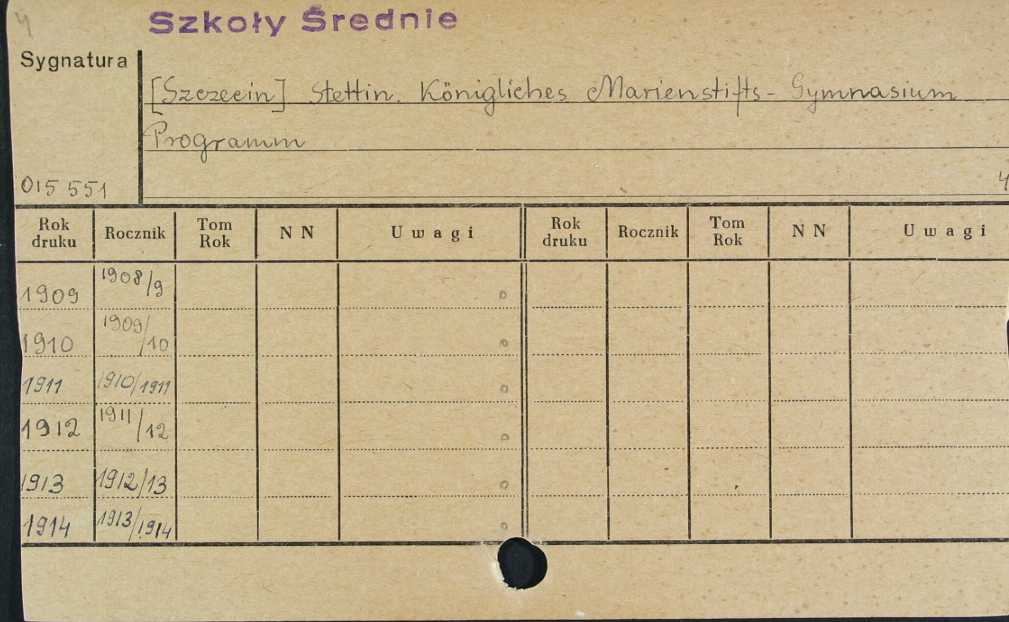 4
Szkoły Średnie
Sygnatura
[Szczecin] Stettin. Königliches Marienstifts-Gymnasium
Programm
015 551
4
Rok druku Rocznik Tom Rok N N Uwagi Rok druku Rocznik Tom Rok N N Uwagi
1909 1908/9
1910 1909/10
1911 1910/1911
1912 1911/12
1913 1912/13
1914 1913/1914